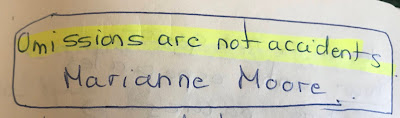 Omissions are not accidents
Marianne Moore..